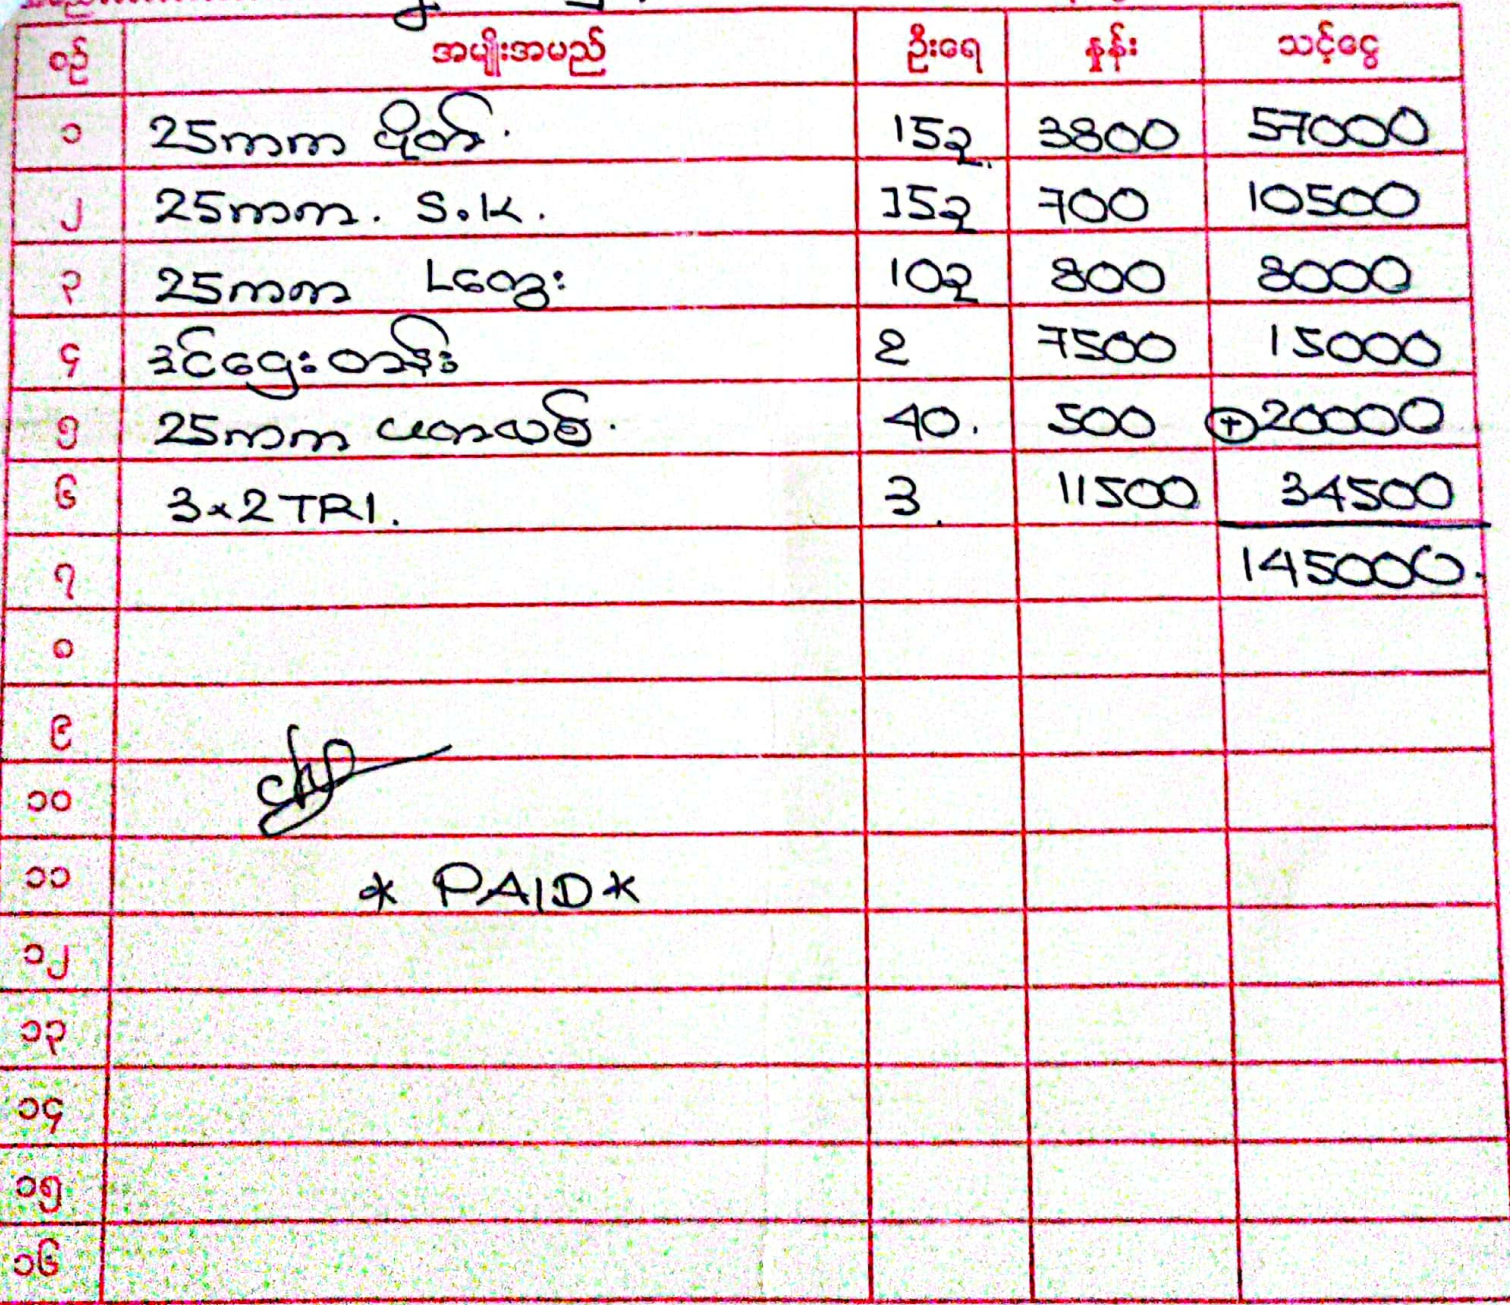 စဉ် အမျိုးအမည် ဦးရေ နှုန်း သင့်ငွေ
၁ 25ကက ပိုက် 15ခု 3800 57000
၂ 25ကက. S.K. 15ခု 700 10500
၃ 25ကက Lကွေး 10ခု 800 8000
၄ 2 7500 15000
၅ 25ကက 40. 500 + 20000
၆ 3×2 TRI. 3. 11500 34500
၇ 145000.
၈
၉
၁၀
၁၁ * PAID *
၁၂
၁၃
၁၄
၁၅
၁၆